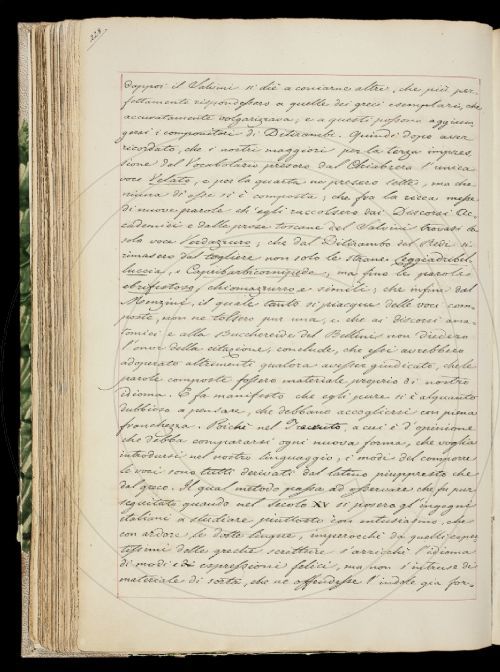 228
dapprei il Salvini si diè a coniarne altre, che più per-
fettamente rispondessero a quelle dei greci esemplari, che
accuratamente volgarizzava; e a questi possono aggiun-
gersi i compositori di Ditirambi. Quindi dopo aver
ricordato, che i nostri maggiori per la terza impres-
sione del Vocabolario presero dal Chiabrera l'unica
voce Velato, e per la quarta ne presero sette, ma che
niuna di esse si è composta; che fra la ricca messe
di nuove parole ch'egli raccolsero dai Discorsi Ac-
cademici e dalle prose toscane del Salvini trovasi la
sola voce Verdazzurro; che dal Ditirambo del Redi si
rimasero dal togliere non solo le strane Leggiadribel-
luccia, e Capribarbicornipede, ma fino le parole
ebrifestoso, chiomazzurro e simili; che infine dal
Menzini, il quale tanto si piacque delle voci com-
poste, non ne tolsero pur una, e che ai discorsi ana-
tomici e alla Bucchereide del Bellini non diedero
l'onor della citazione, conclude, che essi avrebbero
adoperato altrimenti qualora avesser giudicato, che le
parole composte fossero materiale proprio di nostro
idioma. E fa manifesto che egli pure si è alquanto
dubbioso a pensare, che debbano accogliersi con piena
franchezza. Poichè nel Trecento, a cui è d'opinione
che debba compararsi ogni nuova forma, che voglia
introdursi nel nostro linguaggio, i modi del comporre
le voci sono tutti derivati dal latino piuppresto che
dal greco. Il qual metodo passa ad osservare che fu pur
seguitato quando nel secolo XV si posero gl'ingegni
italiani a studiare piuttosto con entusiasmo, che
con ardore le dotte lingue, imperocchè da quelli esper-
tissimi delle greche scritture s'arricchì l'idioma
di modi e di espressioni felici, ma non s'intruse di
materiale di sorta, che ne offendesse l'indole già for-